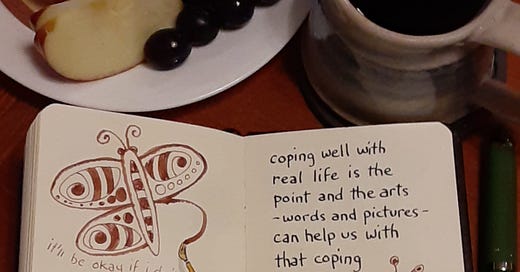 it'll be okay if i
coping well with
real life is the
point and the arts
-words and pictures-
can help us with
that coping